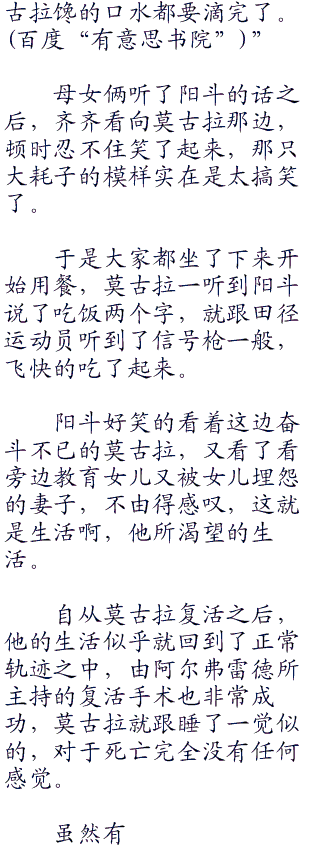 古拉馋的口水都要滴完了。
(百度“有意思书院”)”
母女俩听了阳斗的话之
后，齐齐看向莫古拉那边，
顿时忍不住笑了起来，那只
大耗子的模样实在是太搞笑
了。
于是大家都坐了下来开
始用餐，莫古拉一听到阳斗
说了吃饭两个字，就跟田径
运动员听到了信号枪一般，
飞快的吃了起来。
阳斗好笑的看着这边奋
斗不已的莫古拉，又看了看
旁边教育女儿又被女儿埋怨
的妻子，不由得感叹，这就
是生活啊，他所渴望的生
活。
自从莫古拉复活之后，
他的生活似乎就回到了正常
轨迹之中，由阿尔弗雷德所
主持的复活手术也非常成
功，莫古拉就跟睡了一觉似
的，对于死亡完全没有任何
感觉。
虽然有